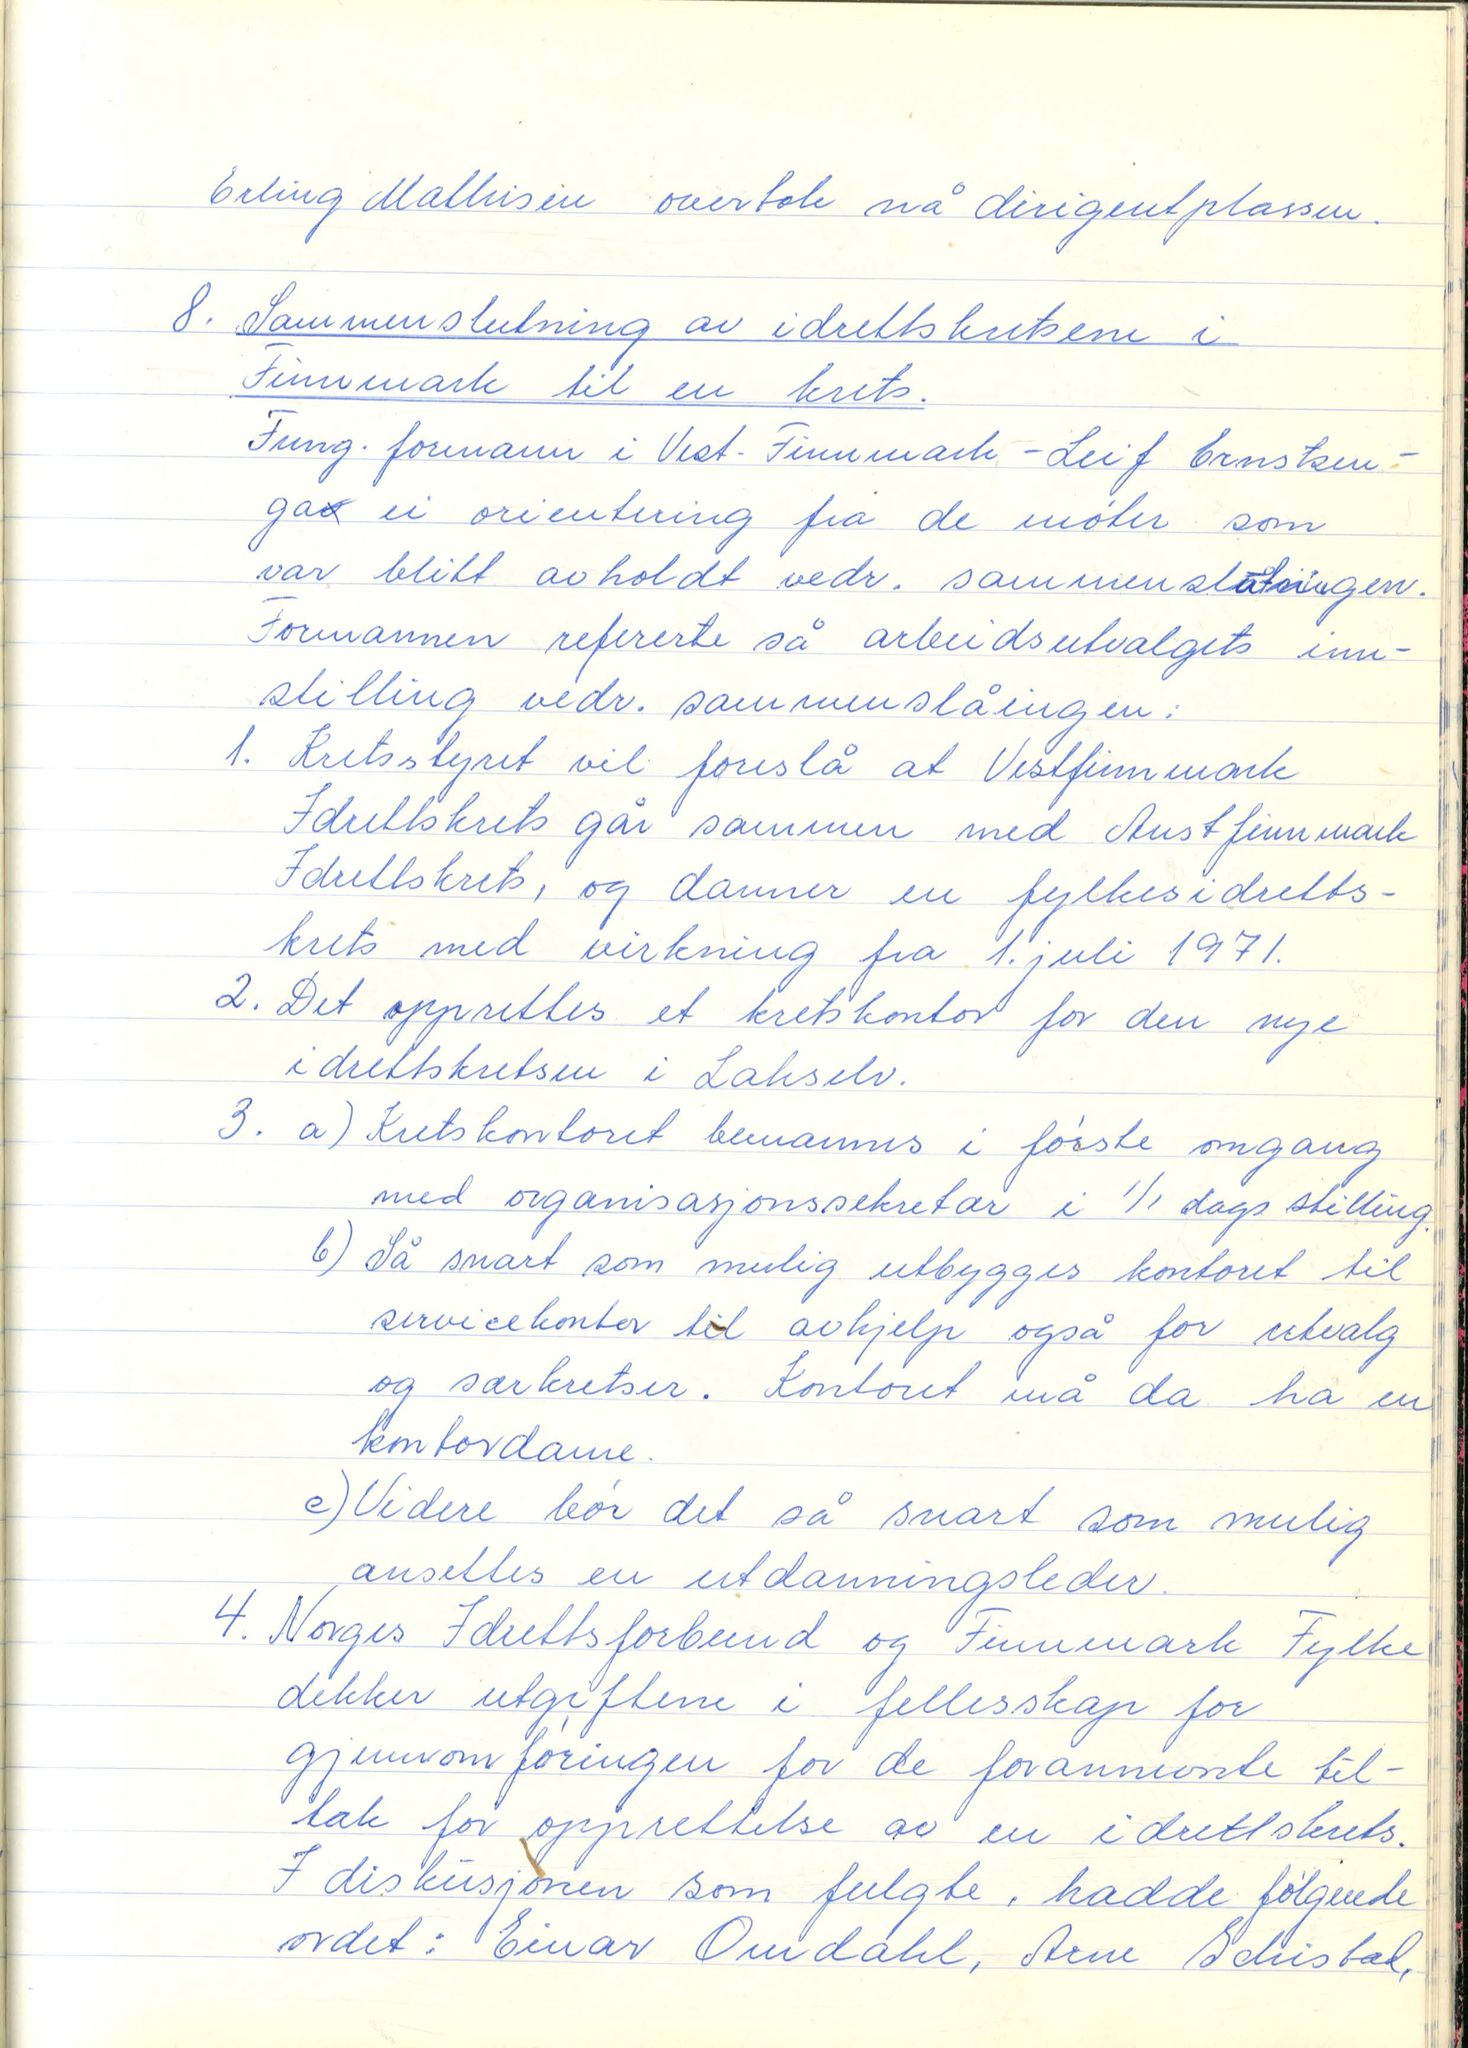 Erling Mathisen overtok nå dirigentplassen.
8. Sammenslutning av idrettskretsene i
Finnmark til en krets.
Fung. formann i Vest-Finnmark - Leif Ernstsen -
ga ei orientering fra de møter som
var blitt avholdt vedr. sammenslåingen.
Formannen refererte så arbeidsutvalgets inn-
stilling vedr. sammenslåingen:
1. Kretsstyret vil foreslå at Vestfinnmark
Idrettskrets går sammen med Austfinnmark
Idrettskrets, og danner en fylkesidretts-
krets med virkning fra 1. juli 1971.
2. Det opprettes et kretskontor for den nye
idrettskretsen i Lakselv.
3. a) Kretskontoret bemannes i første omgang
med organisasjonssekretær i 1/1 dags stilling.
b) Så snart som mulig utbygges kontoret til
servicekontor til avhjelp også for utvalg
og særkretser. Kontoret må da ha en
kontordame.
c) Videre bør det så snart som mulig
ansettes en utdanningsleder.
4. Norges Idrettsforbund og Finnmark Fylke
dekker utgiftene i fellesskap for
gjennomføringen for de forannevnte til-
tak for opprettelse av en idrettskrets.
I diskusjonen som fulgte, hadde følgende
ordet: Einar Omdahl, Arne